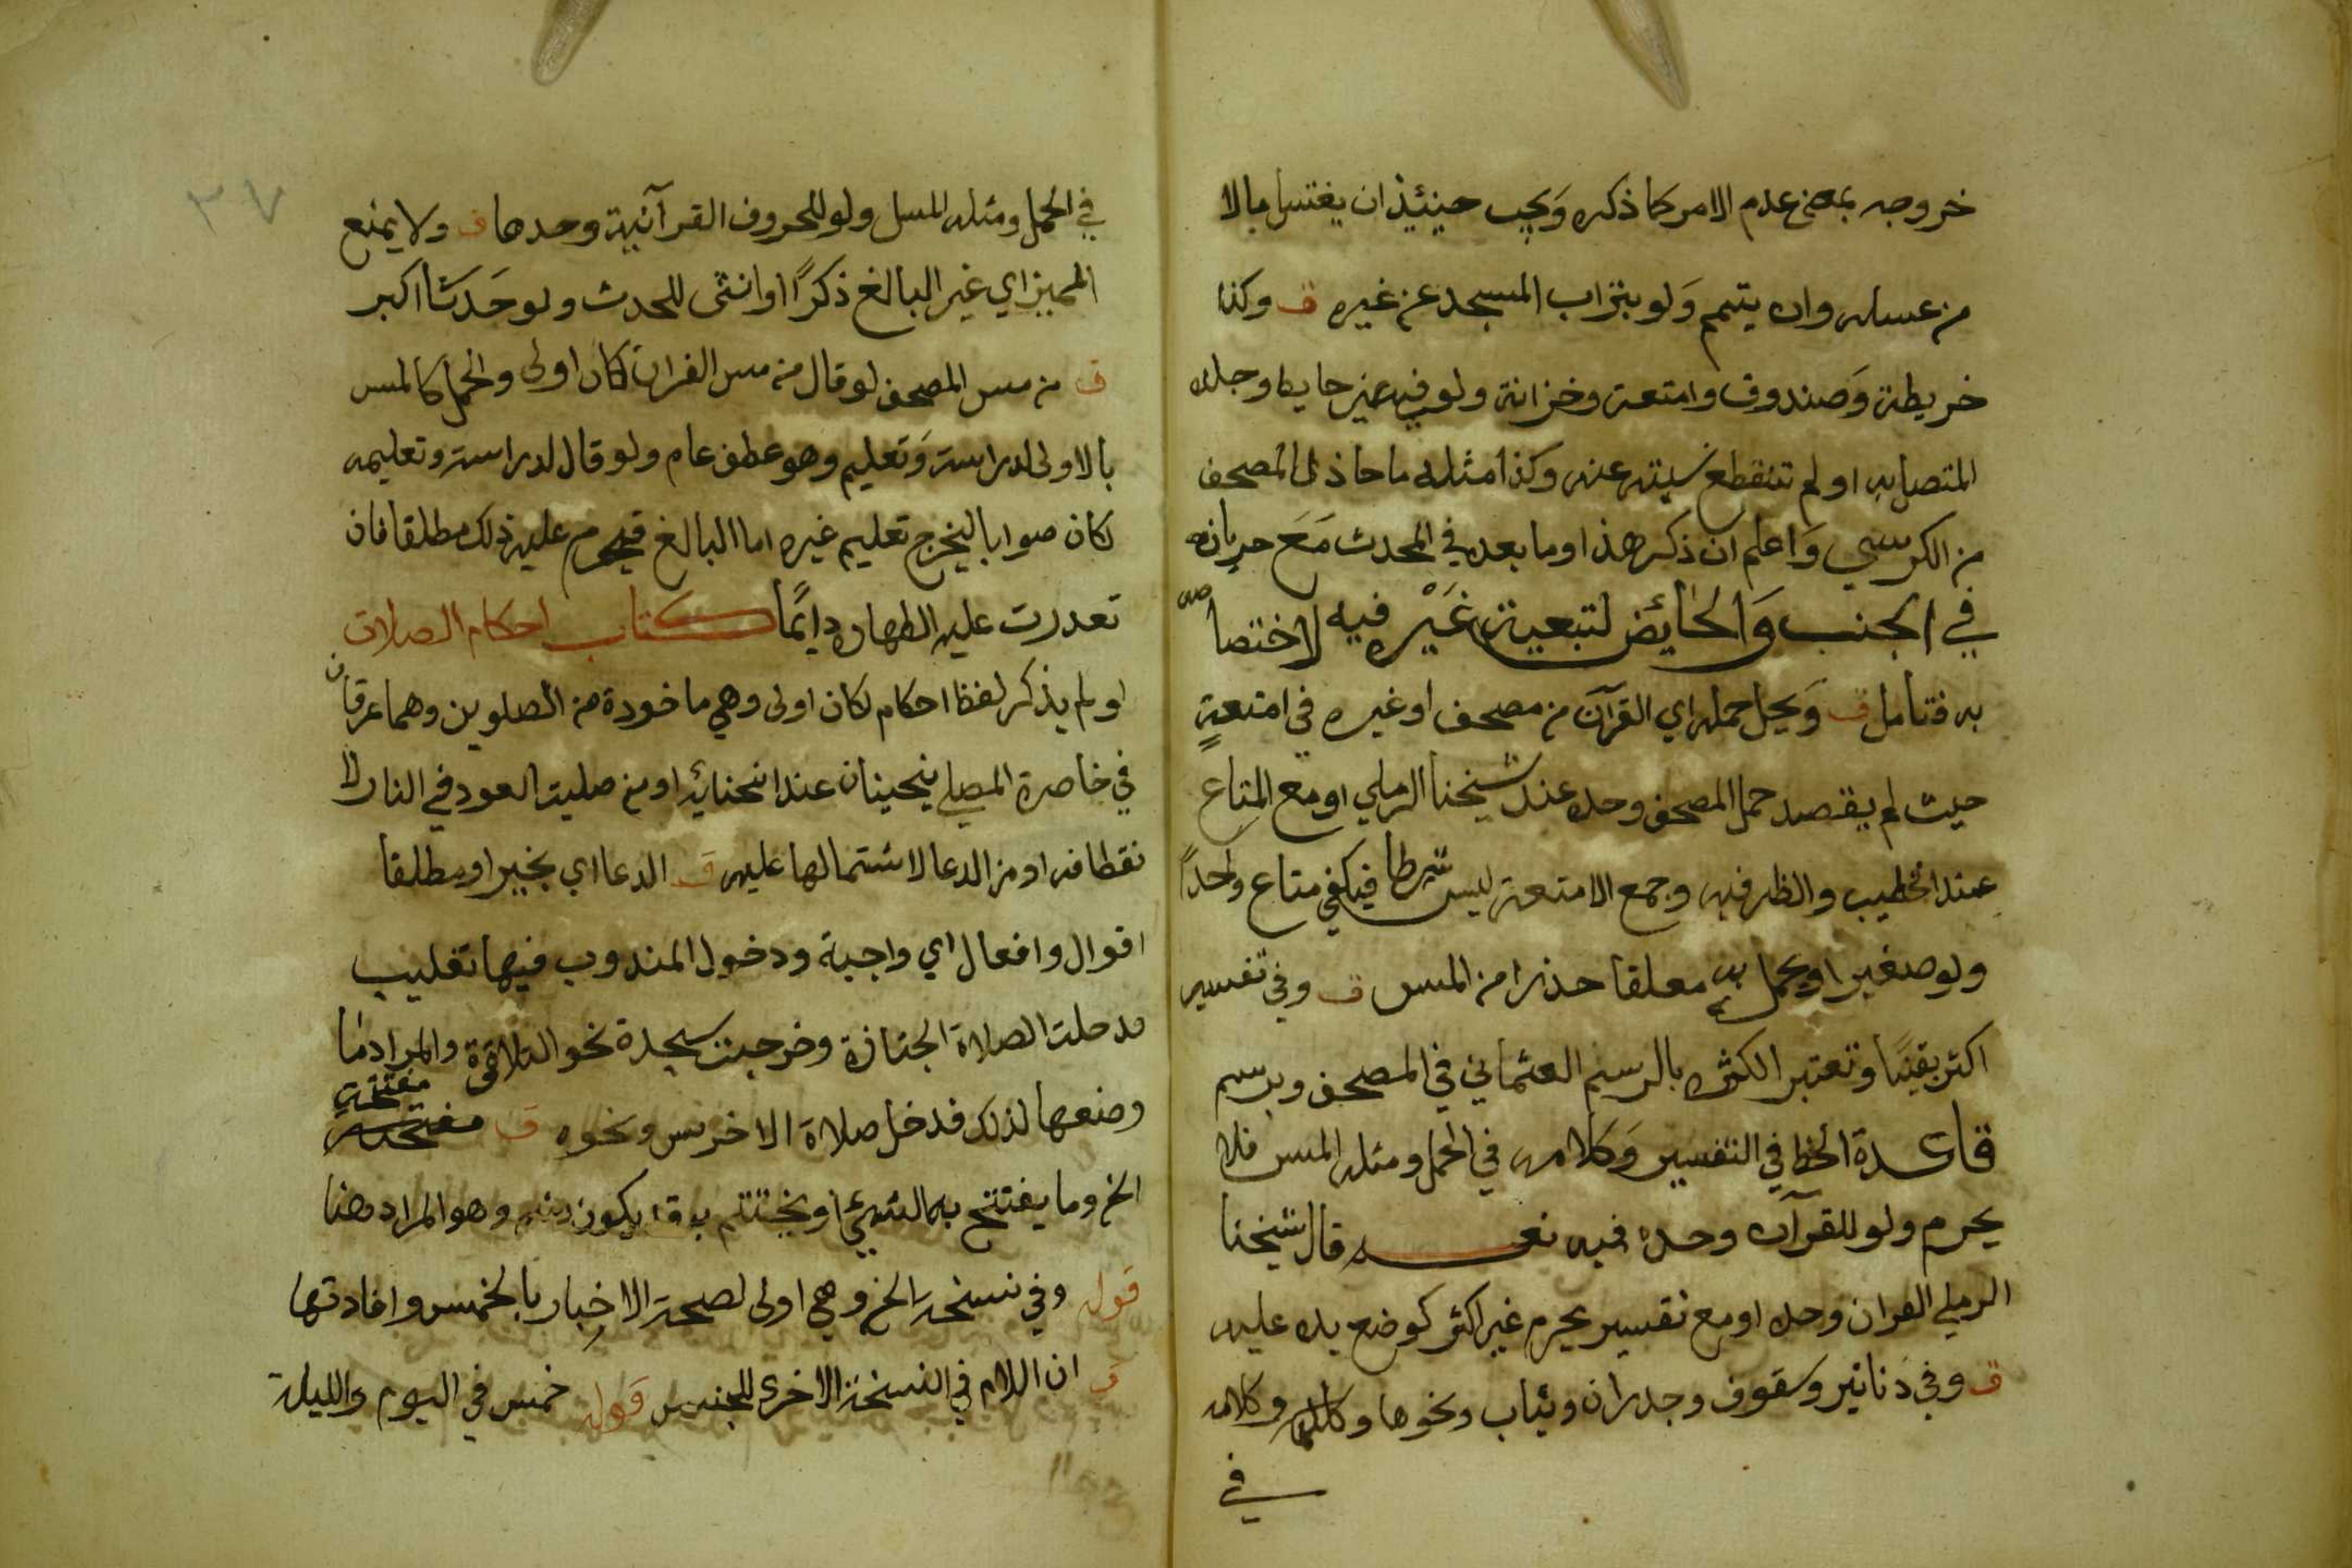 خروجه بمعنى عدم الامر كما ذكره وَيجب حينئيذ ان يغتسل بالا
من غسله وان يتيمم وَلو بتراب المسجد عن غيره ق وكذا
خريطة وَصندوق وامتعة وخزانة ولو في غير حايط وجلده
المتصل به او لم تنقطع نسبته عنه وكذا مثله ما حاذى المصحف
من الكرسي وَاعلم ان ذكر هذا وما بعده في المحدث مَعَ جريانه
في الجنب وَالحائض لتبعية غَيْره فيه لاختصاصه
به فتامل ق وَيحل حمله اي القرآن من مصحف او غيره في امتعةٍ
حيث لم يقصد حمل المصحف وحده عند شيخنا الرملي او مع المتاع
عند الخطيب والظرفية وجمع الامتعة ليس شرطا فيكفي متاع واحدًا
ولو صغيرا ويحمل به معلقا حذرا من المس ق وفي تفسير
اكثر يقينًا وتعتبر الكثره بالرسم العثماني في المصحف وبرسم
قاعدة الخط في التفسير وَكلامه في الحمل ومثله المس فلا
يحرم ولو للقرآن وحده فيه نعم قال شيخنا
الرملي القران وحده او مع تفسير يحرم غير اكثر كوضع يده عليه
ق وفي دنانير وسقوف وجدران وثياب ونحوها وكالمس وكلامه
في
٣٧
في الحمل ومثله المس ولو للحروف القرآنية وحدها ق ولا يمنع
المميز اي غير البالغ ذكرًا او انثى للحدث ولو حَدثا اكبر
ق من مس المصحف لو قال من مس القران لكان اولى والحمل كالمس
بالاولى لدراسته وَتعليم وهو عطف عام ولو قال لدراسته وتعليمه
لكان صوابا ليخرج تعليم غيره اما البالغ فيحرم عليه ذلك مطلقا فان
تعدرت عليه الطهاره دايمًا كتاب احكام الصلاة
او لم يذكر لفظ احكام لكان اولى وهي ماخودة من الصلوين وهما عرقان
في خاصرة المصلي ينحينان عند انحنائه او من صليت العود في النار لا
نقطافه او من الدعا لاشتمالها عليه ق الدعا اي بخير او مطلقا
اقوال وافعال اي واجبة ودخول المندوب فيها تغليب
فدخلت الصلاة الجنازة وخرجت سجدة نحو التلاوة والمراد ما
وضعها لذلك فدخل صلاة الاخرس ونحوه ق مفتتحة
الخ وما يفتتح به الشيئ او يختتم به قد يكون منه وهو المراد هنا
قوله وفي نسخة الخ وهي اولى لصحة الاخبار بالخمس وافادتها
ق ان اللام في النسخة الاخرى للجنس قوله خمس في اليوم والليلة